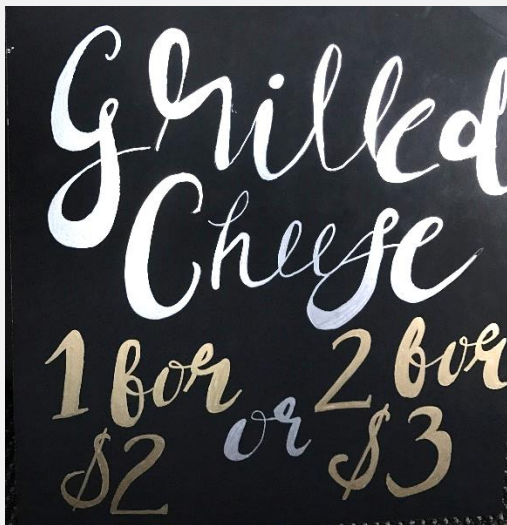 Grilled
Cheese
1 for or 2 for
$2 $3